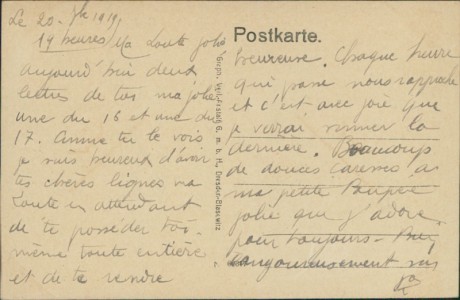 Le 20 - 7bre 1919
19 heures / Ma toute jolie
aujourd'hui deux
lettres de toi ma jolie
une du 16 et une du
17. Comme tu le vois
je suis heureux d'avoir
tes chères lignes ma
toute en attendant
de te posséder toi-
même toute entière
et de te rendre
Postkarte.
heureuse. Chaque heure
qui passe nous rapproche
et c'est avec joie que
je verrai sonner la
dernière. Beaucoup
de douces caresses à
ma petite Poupée
jolie que j'adore
pour toujours -